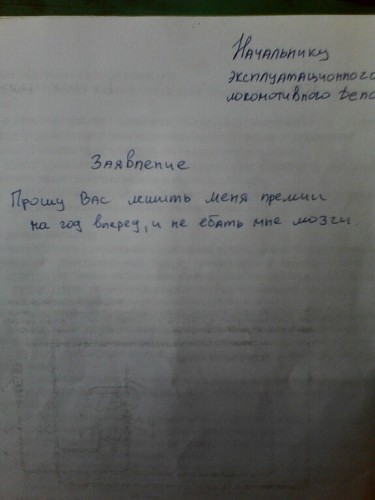 Начальнику
эксплуатационного
локомотивного депо
Заявление
Прошу Вас лишить меня премии
на год вперед, и не ебать мне мозги